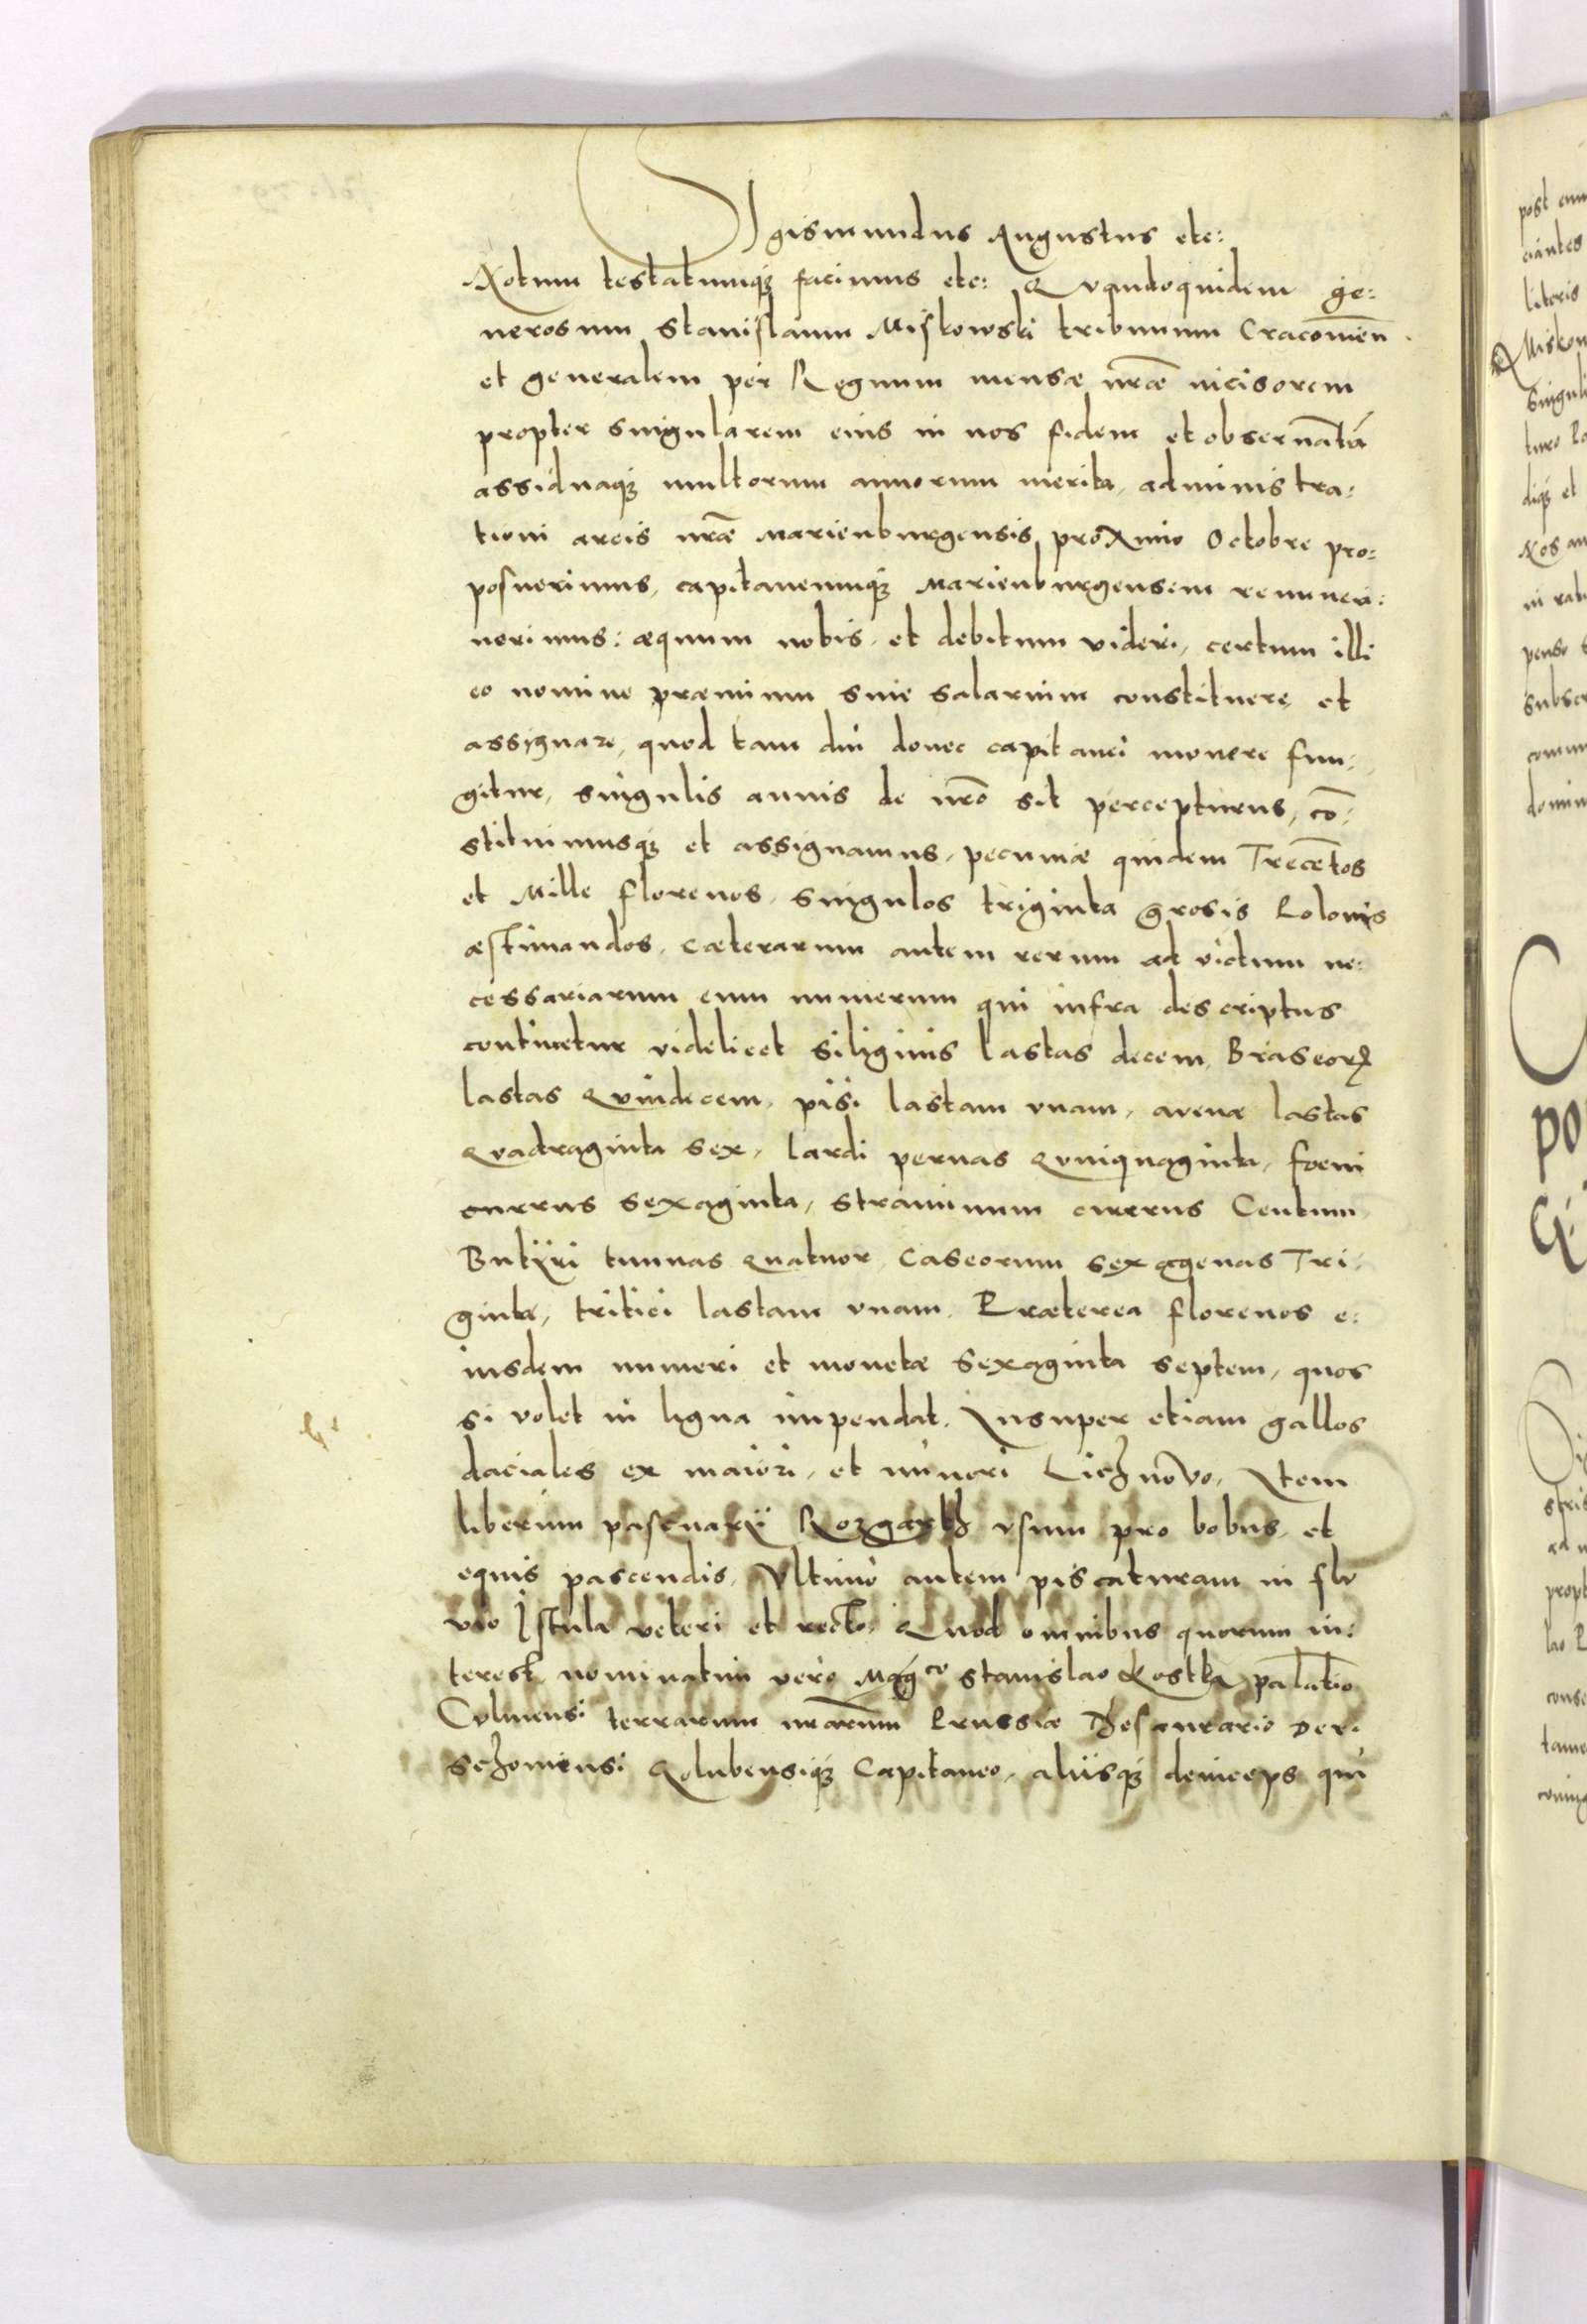 Sigismundus Augustus etc:
Notum testatumqꝫ facimus etc: Quandoquidem ge:
nerosum Stanislaum Miskowski tribunum Cracovień
et generalem per Regnum mensæ nr̄æ incisorem
propter singularem eius in nos fidem et obseruātiā
assiduaqꝫ multorum annorum merita, administra:
tioni arcis nr̄æ Marienburgensis proximo Octobre pro:
posuerimus, capitaneumqꝫ Marienburgensem renuncia:
uerimus: æquum nobis, et debitum videri, certum illi
eo nomine præmium siue salarium constituere et
assignare, quod tam diu donec capitanei munere fun:
gitur, singulis annis de nr̄o sit percepturus, cō:
stituimusqꝫ et assignamus, pecuniæ quidem Trecētos
et Mille florenos, singulos triginta grosis Polonis
æstimandos, cæterarum autem rerum ad victum ne:
cessariarum eum numerum qui infra descriptus
continetur videlicet siliginis lastas decem, Braseorꝝ
lastas Quindecem, pisi lastam vnam, avenæ lastas
Quadraginta sex, lardi pernas Quinquaginta, foeni
currus sexaginta, straminum currus Centum,
Butÿri tunnas Quatuor, Caseorum sexagenas Tri:
ginta, tritici lastam vnam. Præterea florenos e:
iusdem numeri et monetæ sexaginta septem, quos
si volet in ligna impendat. Insuper etiam gallos
daciales ex maiori, et minori Lichnovo, Item
liberum pascuarÿ Rozgarth vsum pro bobus, et
equis pascendis, Vltimo autem piscaturam in flu
vio Istula veteri et recto. Quod omnibus quorum in:
terest nominatim vero Mag^co Stanislao Kostka pālatīo
Culmensi terrarum nr̄arum Prussiæ Thesaurario Der:
schoviensi Golubensiqꝫ Capitaneo, aliisqꝫ deinceps qui